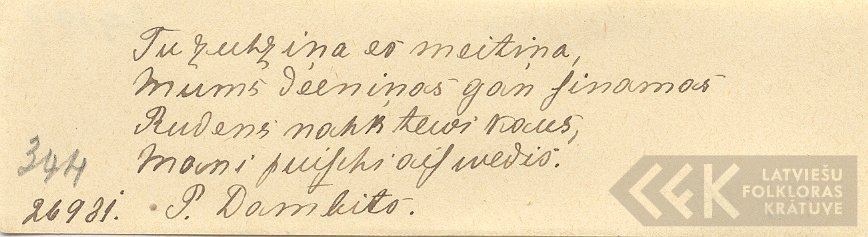 Tu zuhziņa es meitiņa,
Mums deeniņas gan ſinamas
Rudens nahk tewi kaus,
Mani puiſchi aiſwedis.
344
26931. P. Dambits.
LATVIEŠU
FOLKLORAS
KRĀTUVE